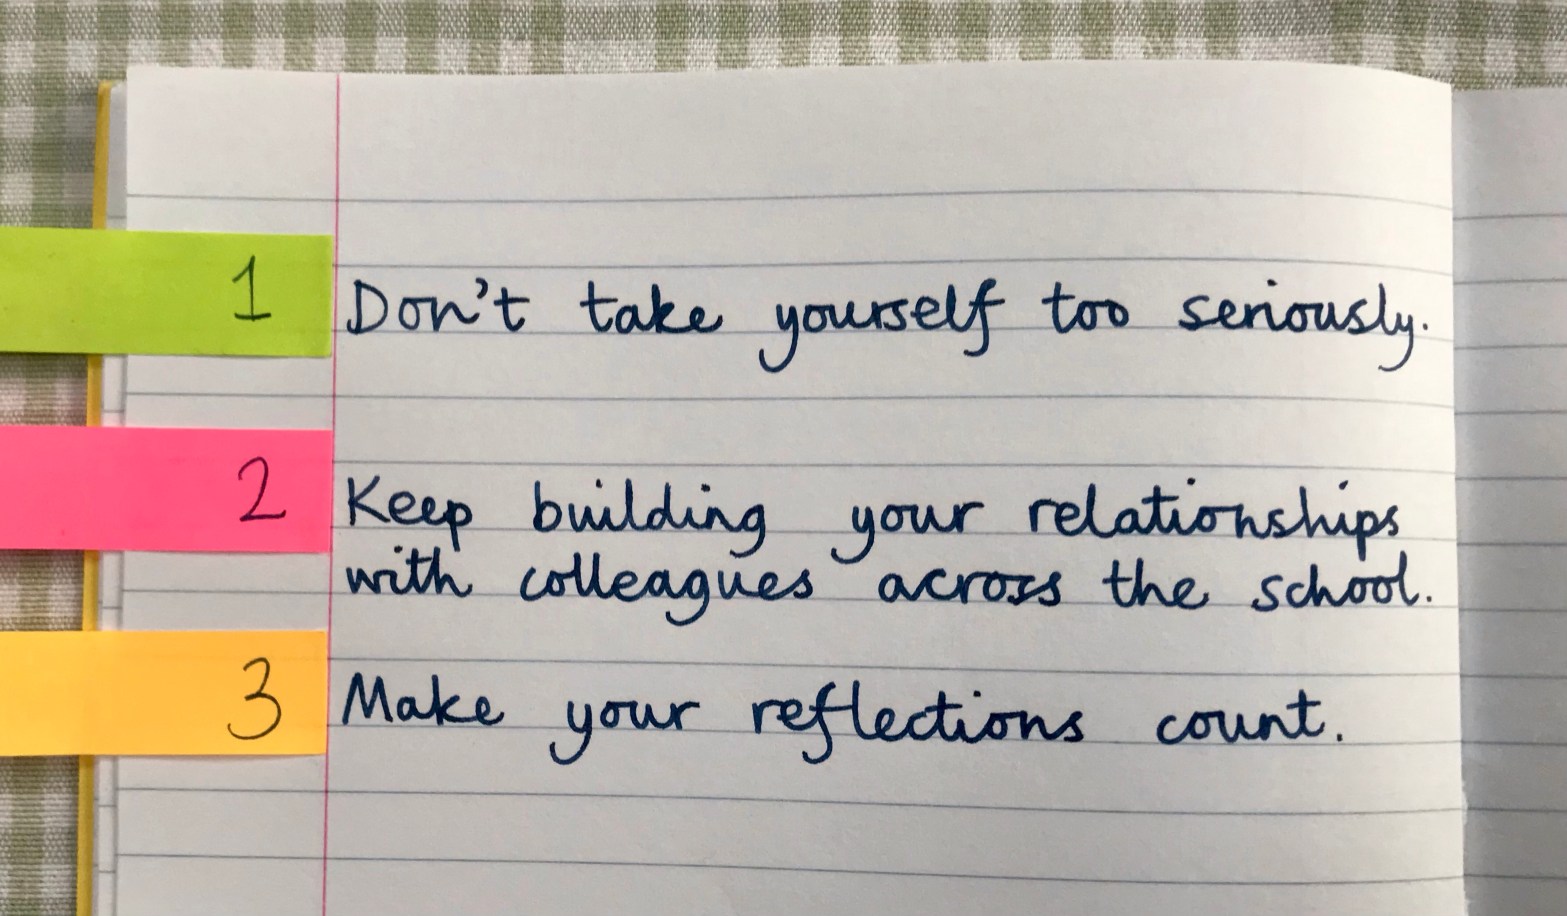 1 Don't take yourself too seriously.
2 Keep building your relationships
with colleagues across the school.
3 Make your reflections count.